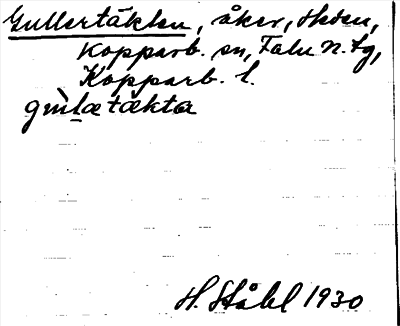 Gullertäkten, åker, Heden,
Kopparb. sn, Falu N. tg,
Kopparb. l.
H. Ståhl 1930